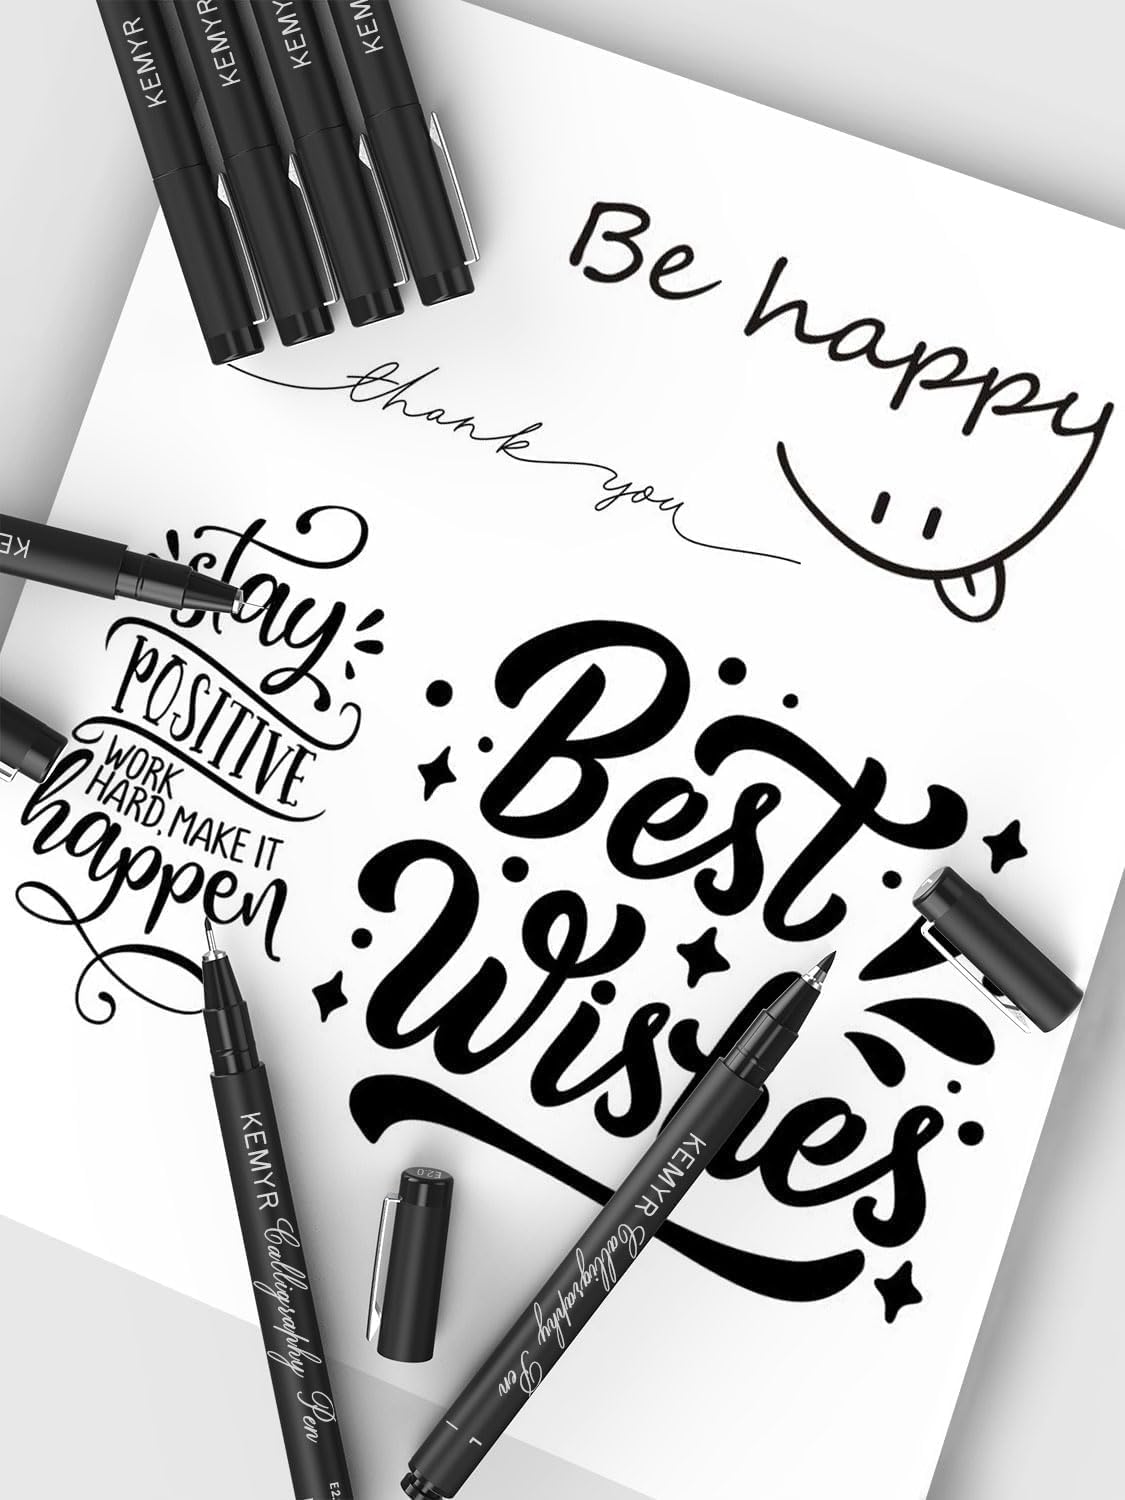 KEMYR
KEMYR
KEMYR
KEMYR
Be happy
thank you
stay
POSITIVE
WORK
HARD, MAKE IT
happen
Best
Wishes
KE
KEMYR Calligraphy Pen
E2.
E2.0
KEMYR Calligraphy Pen
L